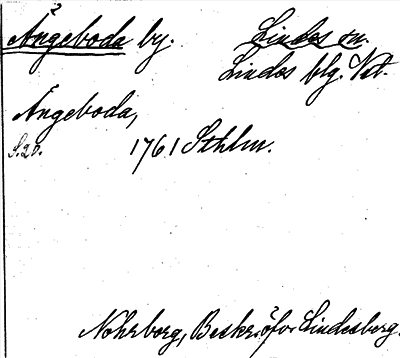 2
Ängeboda by. Lindes sn.
Lindes blg. Vstm.
Ängeboda,
S. 20. 1761 Sthlm.
Nohrborg, Beskr. öfver Lindesberg.